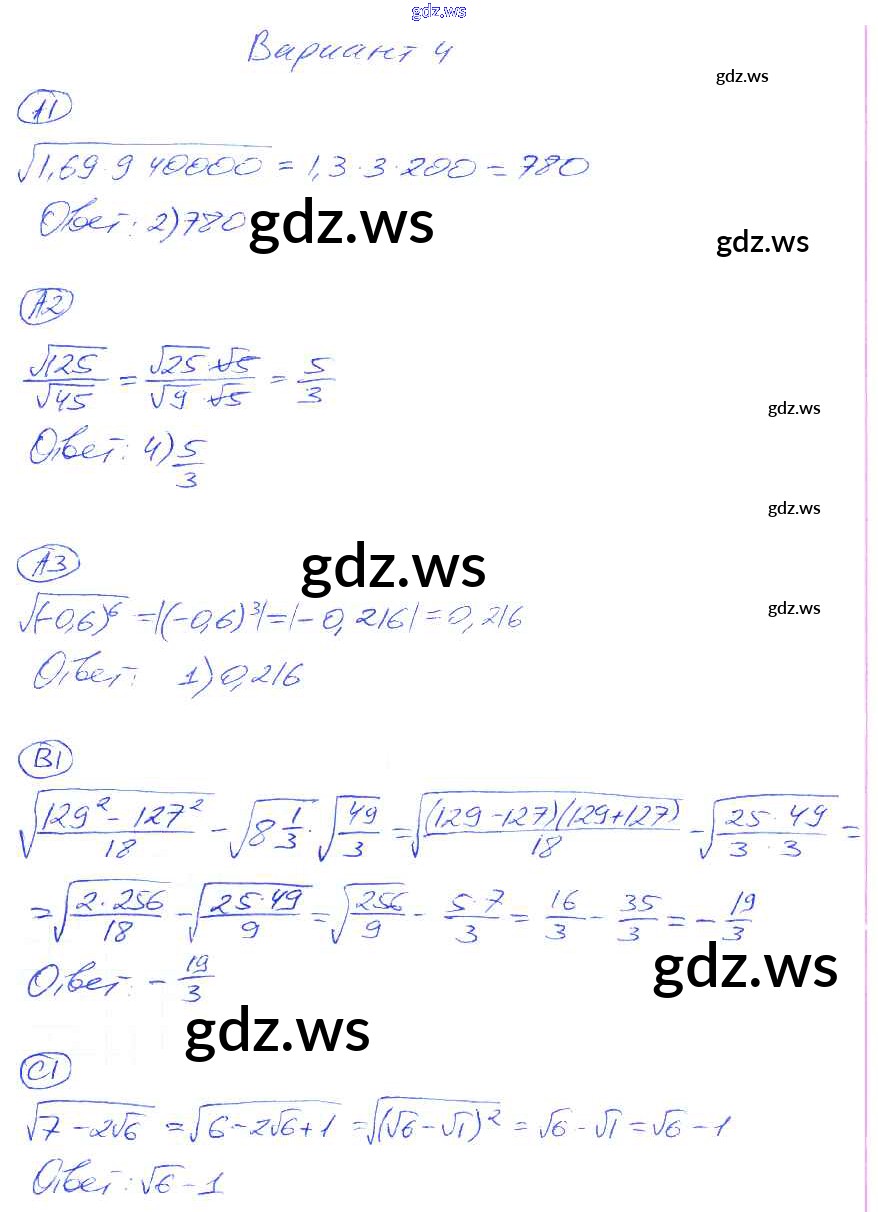 gdz.ws
Вариант 4
gdz.ws
А1
√(1,69·9 40000) = 1,3·3·200 = 780
Ответ: 2) 780
gdz.ws
gdz.ws
А2
√125/√45 = (√25·√5)/(√9·√5) = 5/3
gdz.ws
Ответ: 4) 5/3
gdz.ws
А3
gdz.ws
√(-0,6)⁶ = |(-0,6)³| = |-0,216| = 0,216
gdz.ws
Ответ: 1) 0,216
В1
√((129² - 127²)/18) - √(8 1/3) · √(49/3) = √((129-127)(129+127)/18) - √((25·49)/(3·3)) =
= √((2·256)/18) - √((25·49)/9) = √(256/9) - (5·7)/3 = 16/3 - 35/3 = - 19/3
gdz.ws
Ответ: - 19/3
gdz.ws
С1
√(7 - 2√6) = √(6 - 2√6 + 1) = √((√6 - √1)²) = √6 - √1 = √6 - 1
Ответ: √6 - 1